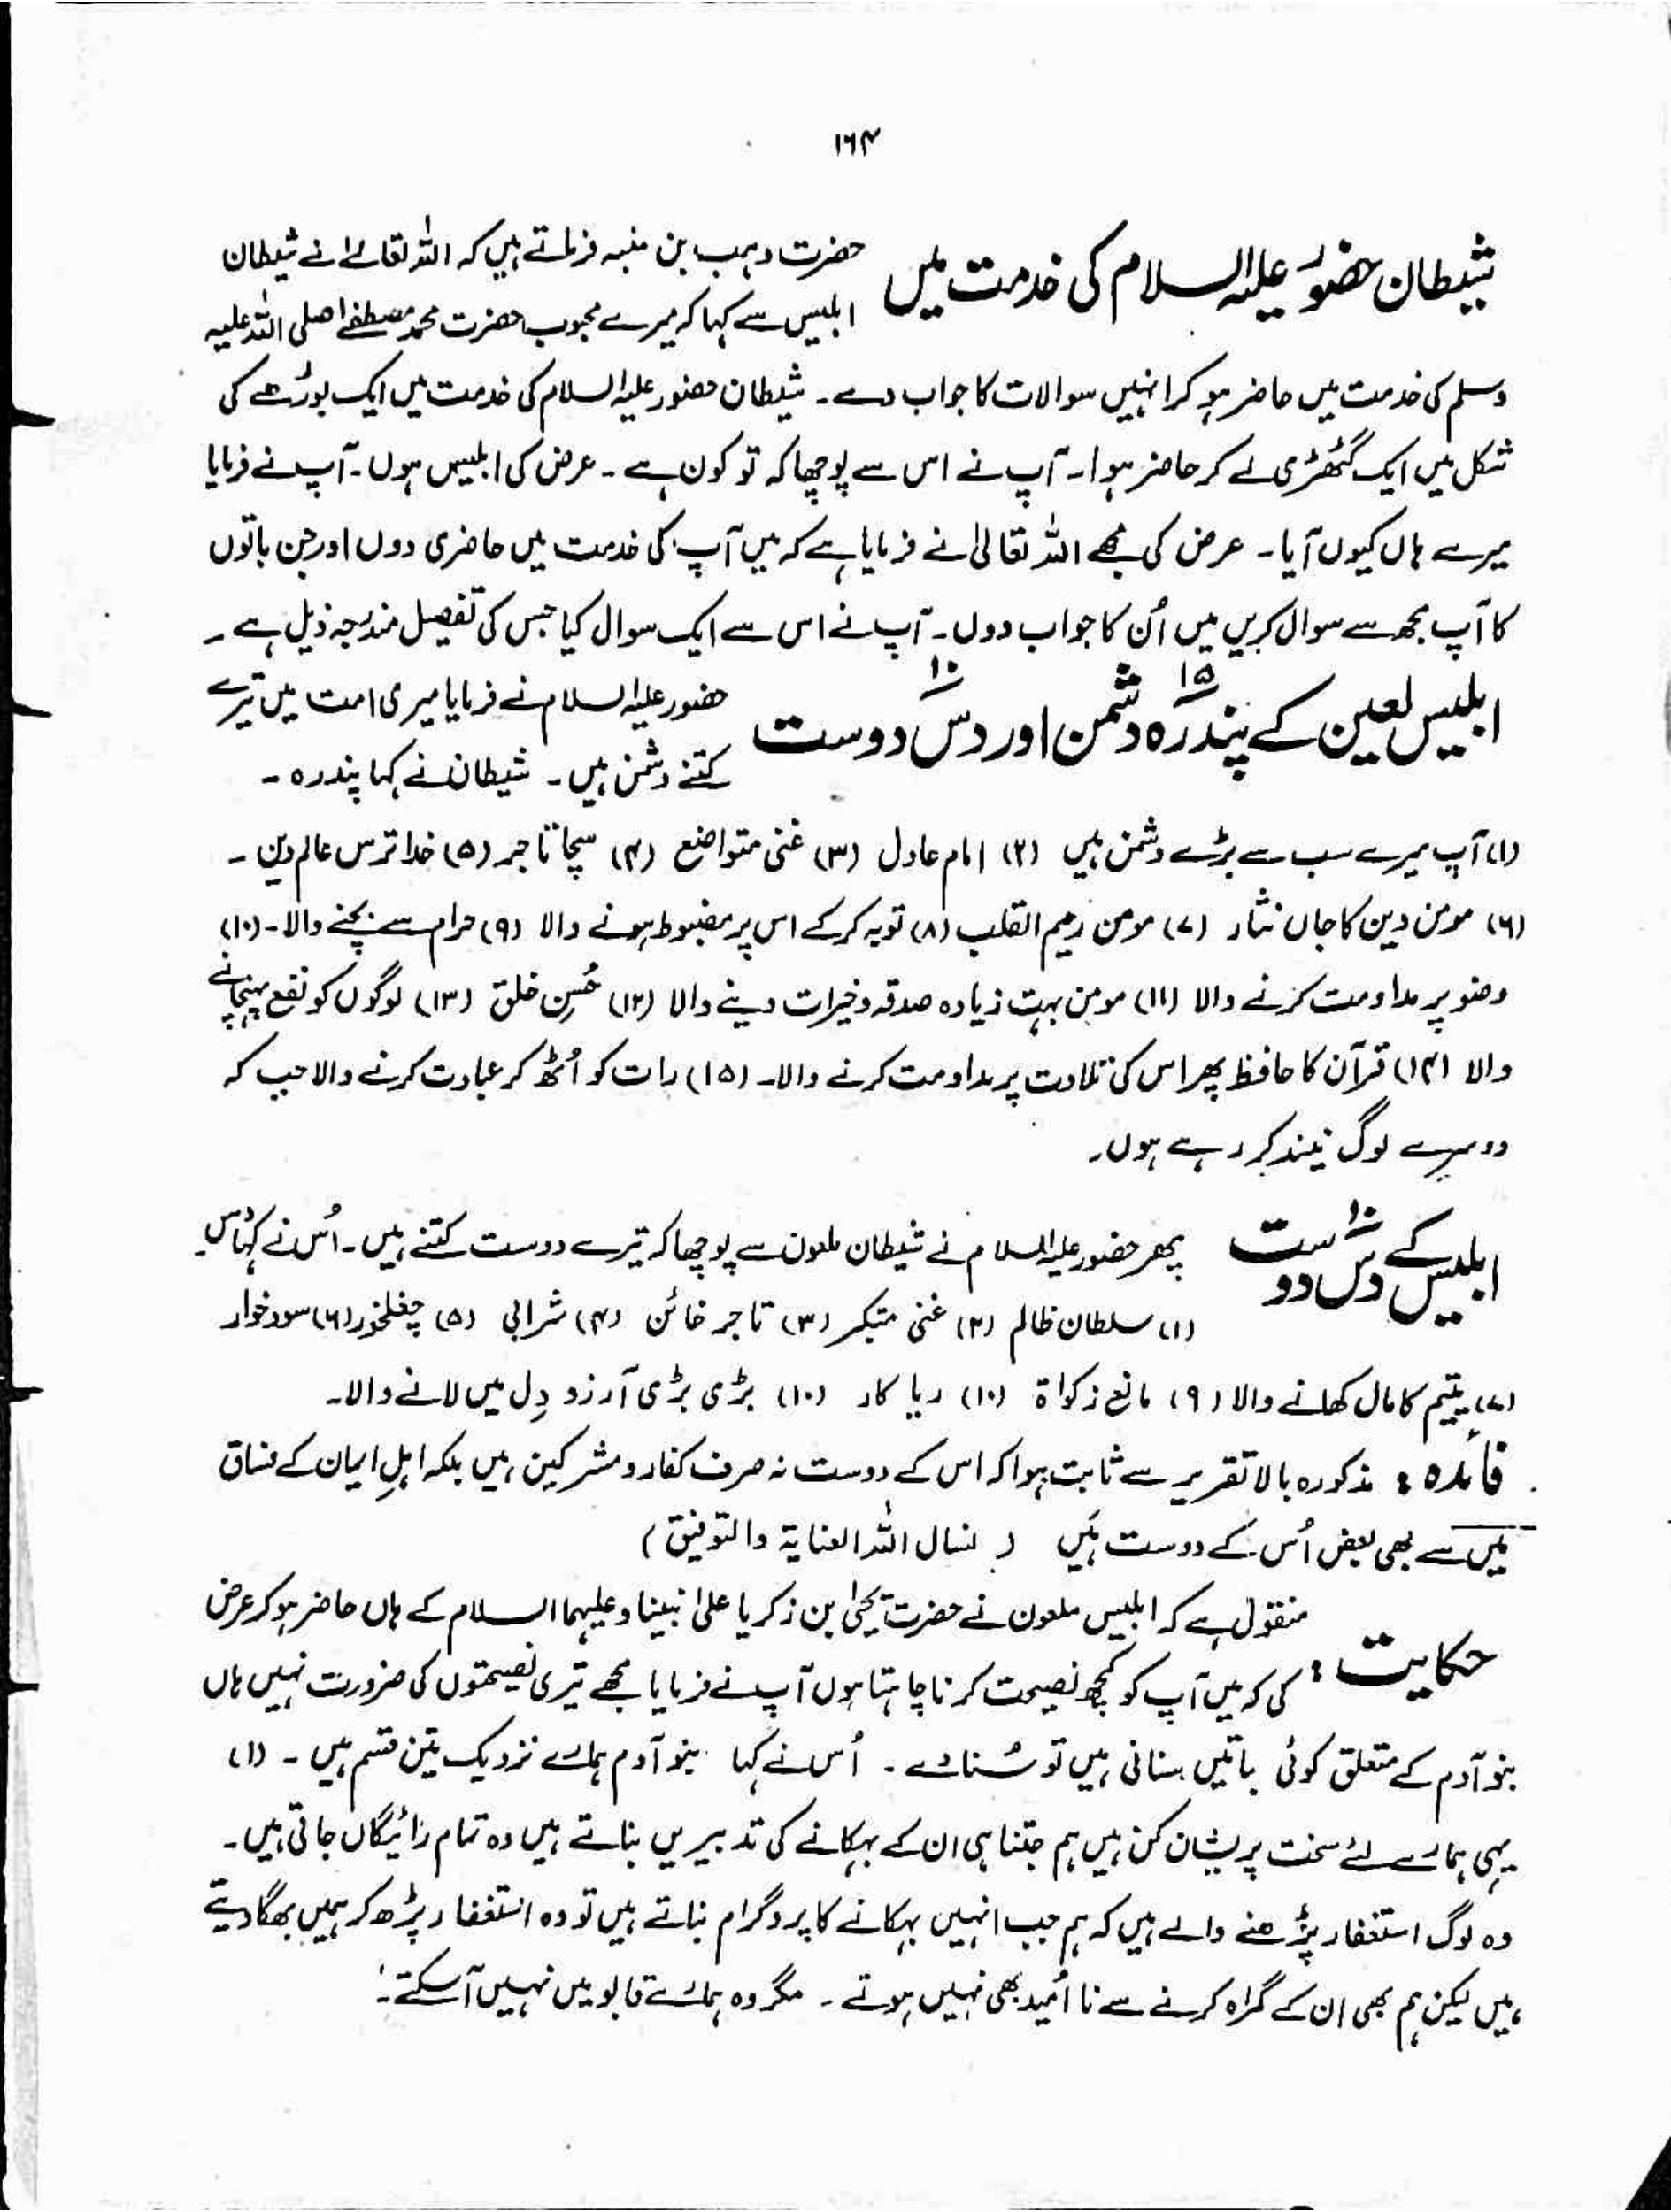 ۱۶۴
شیطان حضور علیہ السلام کی خدمت میں
حضرت وہب بن منبہ فرماتے ہیں کہ اللہ تعالےٰ نے شیطان
ابلیس سے کہا کہ میرے محبوب حضرت محمد مصطفےٰ صلی اللہ علیہ
وسلم کی خدمت میں حاضر ہو کر انہیں سوالات کا جواب دے۔ شیطان حضور علیہ السلام کی خدمت میں ایک بوڑھے کی
شکل میں ایک گٹھڑی لے کر حاضر ہوا۔ آپ نے اس سے پوچھا کہ تو کون ہے۔ عرض کی ابلیس ہوں۔ آپ نے فرمایا
میرے ہاں کیوں آیا۔ عرض کی مجھے اللہ تعالیٰ نے فرمایا ہے کہ میں آپ کی خدمت میں حاضری دوں اور جن باتوں
کا آپ مجھ سے سوال کریں میں اُن کا جواب دوں۔ آپ نے اس سے ایک سوال کیا جس کی تفصیل مندرجہ ذیل ہے۔
ابلیس لعین کے پندرہ ۱۵ دشمن اور دس ۱۰ دوست
حضور علیہ السلام نے فرمایا میری امت میں تیرے
کتنے دشمن ہیں۔ شیطان نے کہا پندرہ۔
(۱) آپ میرے سب سے بڑے دشمن ہیں (۲) امام عادل (۳) غنی متواضع (۴) سچا تاجر (۵) خدا ترس عالم دین۔
(۶) مومن دین کا جاں نثار (۷) مومن رحیم القلب (۸) توبہ کر کے اس پر مضبوط ہونے والا (۹) حرام سے بچنے والا۔ (۱۰)
وضو پر مداومت کرنے والا (۱۱) مومن بہت زیادہ صدقہ و خیرات دینے والا (۱۲) حُسنِ خلق (۱۳) لوگوں کو نفع پہنچانے
والا (۱۴) قرآن کا حافظ پھر اس کی تلاوت پر مداومت کرنے والا۔ (۱۵) رات کو اُٹھ کر عبادت کرنے والا جب کہ
دوسرے لوگ نیند کر رہے ہوں۔
ابلیس کے دس ۱۰ دوست
پھر حضور علیہ السلام نے شیطان ملعون سے پوچھا کہ تیرے دوست کتنے ہیں۔ اُس نے کہا دس۔
(۱) سلطان ظالم (۲) غنی متکبر (۳) تاجر خائن (۴) شرابی (۵) چغلخور (۶) سود خوار
(۷) یتیم کا مال کھانے والا (۹) مانع زکواۃ (۱۰) ریا کار (۱۰) بڑی بڑی آرزو دِل میں لانے والا۔
فائدہ : مذکورہ بالا تقریر سے ثابت ہوا کہ اس کے دوست نہ صرف کفار و مشرکین ہیں بلکہ اہلِ ایمان کے فساق
میں سے بھی بعض اُس کے دوست ہیں ( نسال اللہ العنایۃ والتوفیق )
حکایت :
منقول ہے کہ ابلیس ملعون نے حضرت یحیٰ بن زکریا علیٰ نبینا و علیہما السلام کے ہاں حاضر ہو کر عرض
کی کہ میں آپ کو کچھ نصیحت کرنا چاہتا ہوں آپ نے فرمایا مجھے تیری نصیحتوں کی ضرورت نہیں ہاں
بنو آدم کے متعلق کوئی باتیں سنانی ہیں تو سُنا دے۔ اُس نے کہا بنو آدم ہمارے نزدیک تین قسم ہیں۔ (۱)
یہی ہمارے لئے سخت پریشان کن ہیں ہم جتنا ہی ان کے بہکانے کی تدبیریں بناتے ہیں وہ تمام رائیگاں جاتی ہیں۔
وہ لوگ استغفار پڑھنے والے ہیں کہ ہم جب انہیں بہکانے کا پروگرام بناتے ہیں تو وہ استغفار پڑھ کر ہمیں بھگا دیتے
ہیں لیکن ہم بھی ان کے گمراہ کرنے سے نا اُمید بھی نہیں ہوتے۔ مگر وہ ہمارے قابو میں نہیں آ سکتے۔